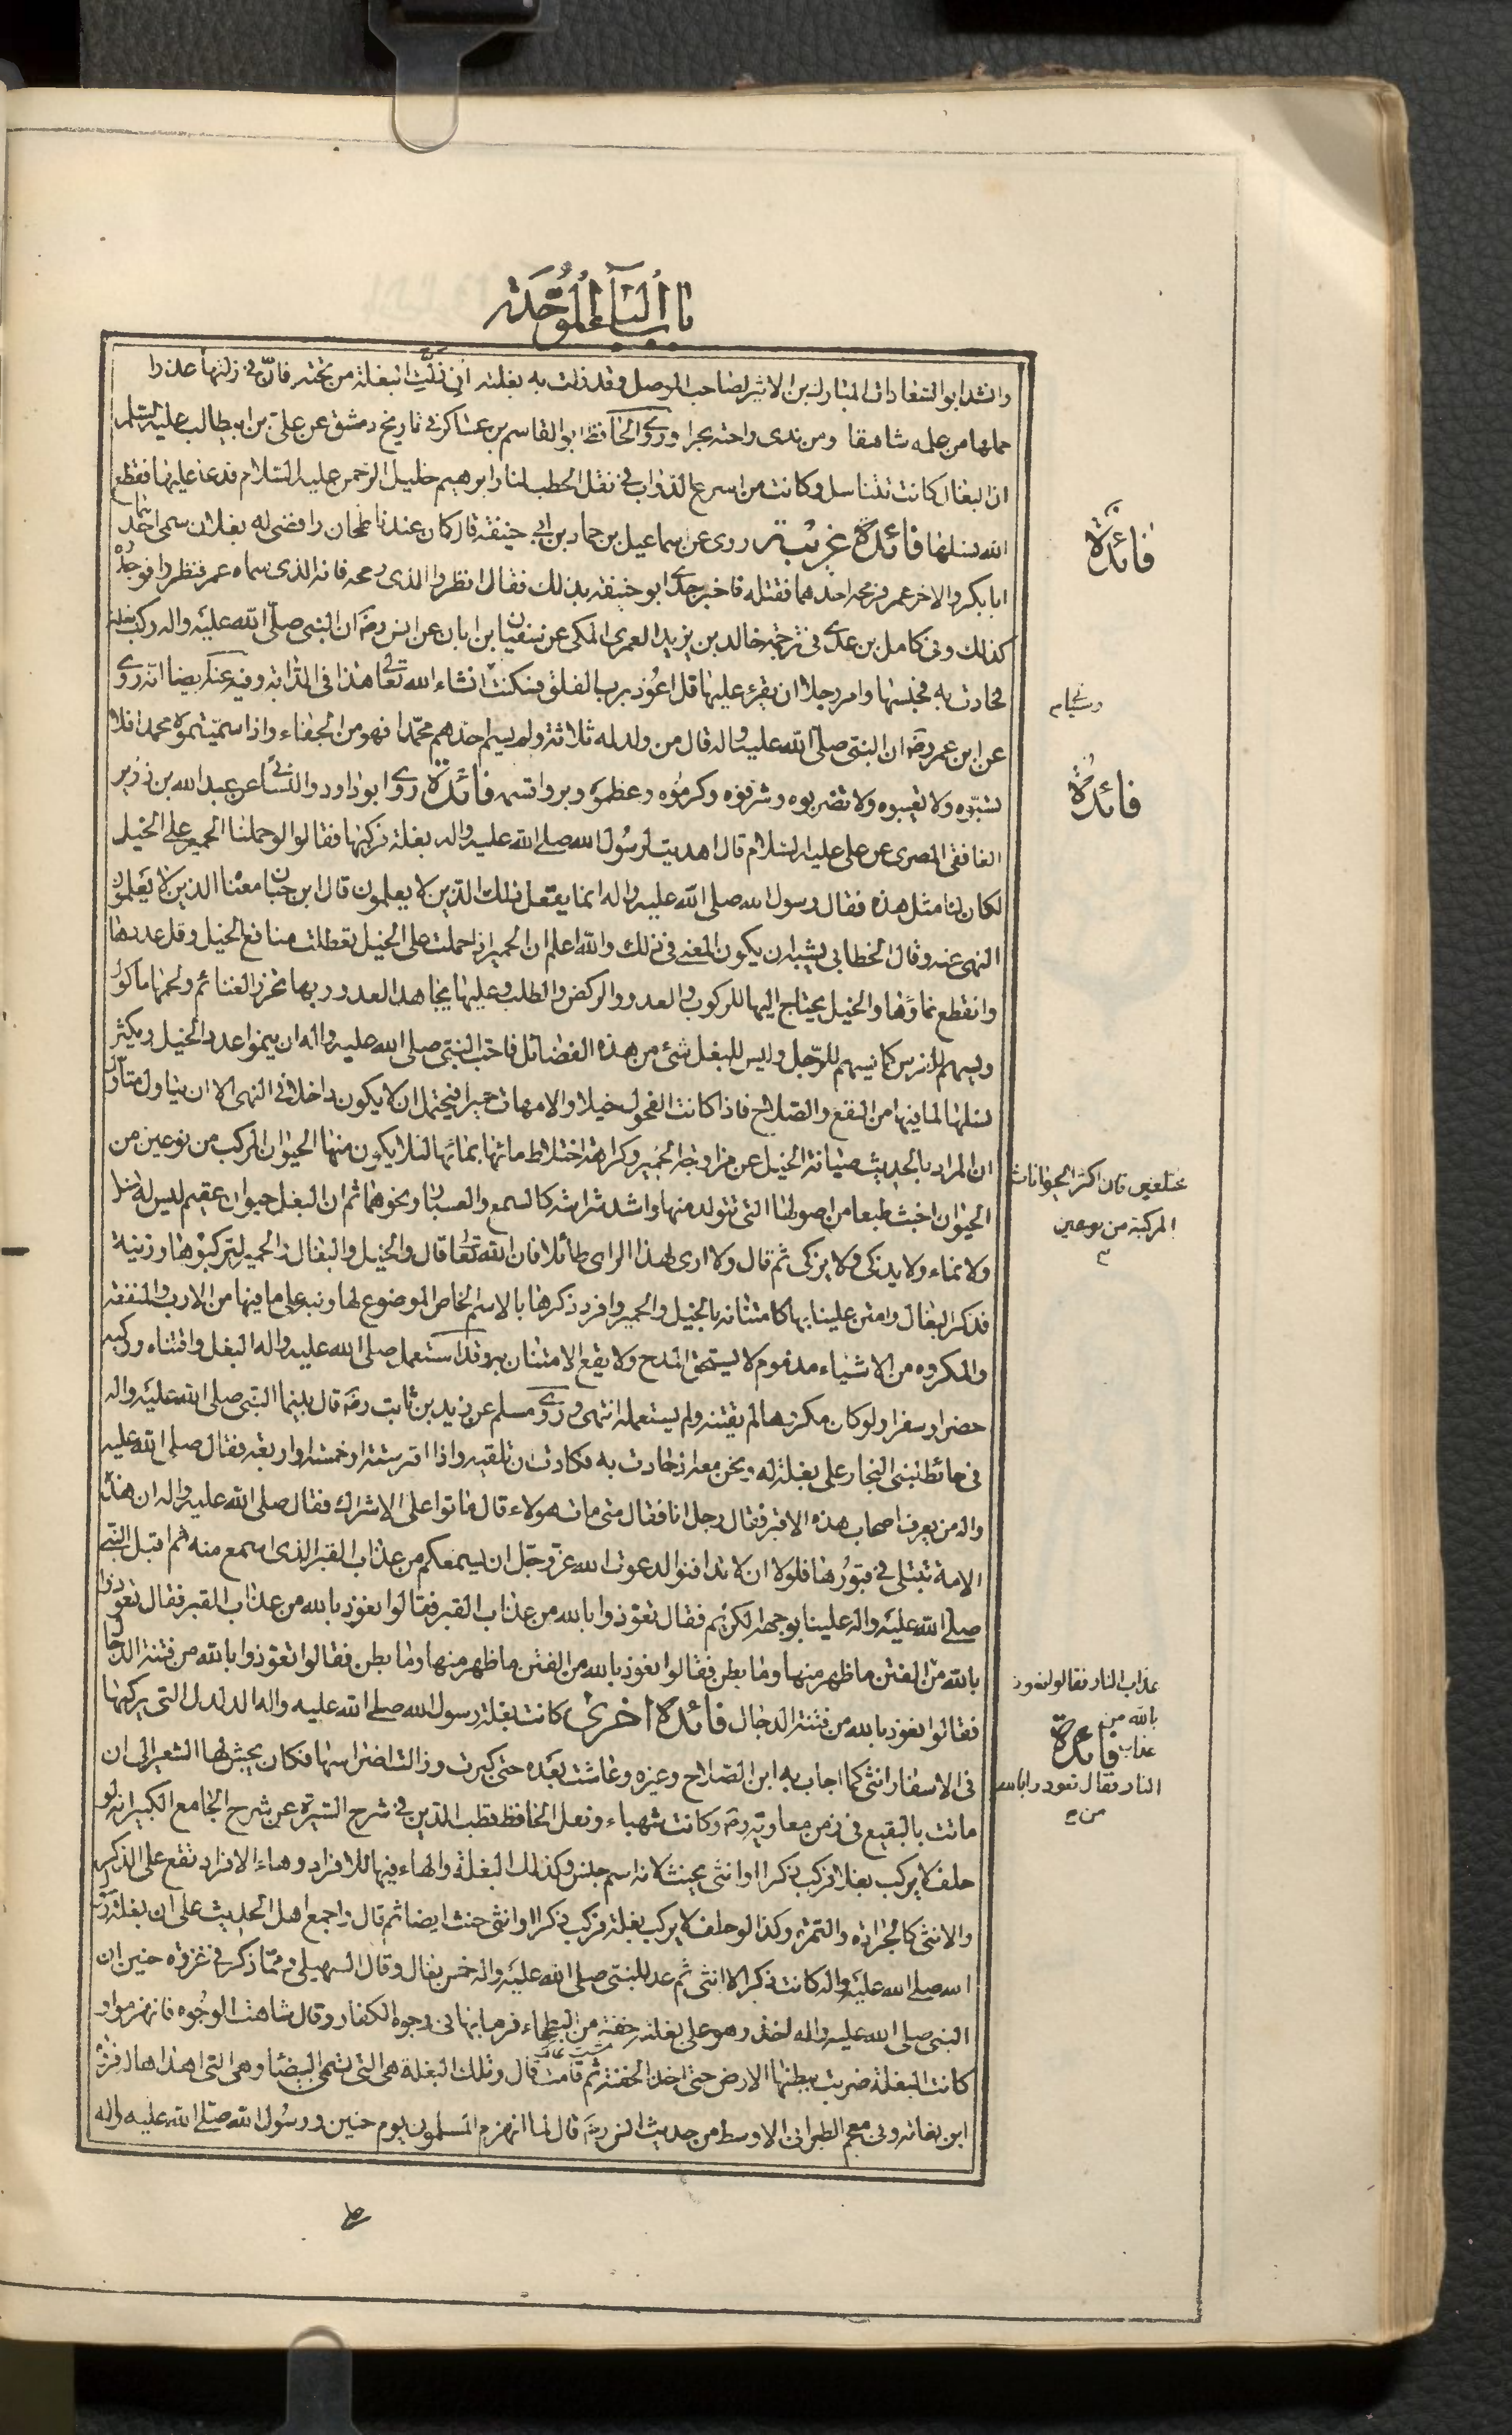 باب الباء الموحدة
وانشد ابو السعادات المبارك بن الاثير لصاحب الموصل وقد زلت به بغلته ان زلت البغلة من تحته فان فى زلتها عذرا
حملها من علمه شاهقا ومن ندى راحته بحرا وروى الحافظ ابو القاسم بن عساكر فى تاريخ دمشق عن على بن ابيطالب عليه السلم
ان البغال كانت تتناسل وكانت من اسرع الدواب فى نقل الحطب لنار ابرهيم خليل الرحمن عليه السلام فدعا عليها فقطع
الله نسلها فائدة غريبة روى عن اسماعيل بن حماد بن ابى حنيفة قال كان عندنا طحان رافضى له بغلان سمى احدهما
ابا بكر والاخر عمر فرمحه احدهما فقتله فاخبر جدى ابو حنيفة بذلك فقال انظروا الذى رمحه فانه الذى سماه عمر فنظروا فوجدوه
كذلك وفى كامل بن عدى فى ترجمة خالد بن يزيد العمرى المكى عن سفيان ابن ابان عن انس رضه ان النبى صلى الله عليه واله ركب بغلة
فحادت به فحبسها وامر رجلا ان يقرء عليها قل اعوذ برب الفلق فسكنت انشاء الله تعالى هذا فى الدابة وفيه عنه ايضا انه روى
عن ابن عمر رضه ان النبى صلى الله عليه واله قال من ولد له ثلاثة ولم يسم احدهم محمدا فهو من الجفاء واذا سميتموه محمدا فلا
تسبوه ولا تعيبوه ولا تضربوه وشرفوه وكرموه وعظموه وبروا قسمه فائدة روى ابو داود والنسائى عن عبد الله بن زرير
الغافقى المصرى عن على عليه السلام قال اهديت لرسول الله صلى الله عليه واله بغلة فركبها فقالوا لو حملنا الحمير على الخيل
لكان لنا مثل هذه فقال رسول الله صلى الله عليه واله انما يفعل ذلك الذين لا يعلمون قال ابن حبان معناه الذين لا يعلمون
النهى عنه وقال الخطابى يشبه ان يكون المعنى فى ذلك والله اعلم ان الحمير اذا حملت على الخيل تعطلت منافع الخيل وقل عددها
وانقطع نماؤها والخيل يحتاج اليها للركوب والعدو والركض والطلب وعليها يجاهد العدو وبها تحرز الغنائم ولحمها ماكول
ويسهم للفرس كما يسهم للرجل وليس للبغل شئ من هذه الفضائل فاحب النبى صلى الله عليه واله ان ينمو اعدد الخيل ويكثر
نسلها لما فيها من النفع والصلاح فاذا كانت الفحول خيلا والامهات حميرا فيحتمل ان لا يكون داخلا فى النهى الا ان يتاول متاول
ان المراد بالحديث صيانة الخيل عن مزاوجة الحمير وكراهة اختلاط مائها بمائها لئلا يكون منها الحيوان المركب من نوعين من
الحيوان اخبث طبعا من اصولها التى تتولد منها واشد شراسة كالسمع والعسبار ونحوهما ثم ان البغل حيوان عقيم ليس له نسل
ولا نماء ولا يدكى ولا يزكى ثم قال ولا ارى لهذا الراى طائلا فان الله تعالى قال والخيل والبغال والحمير لتركبوها وزينة
فذكر البغال وامتن علينا بها كامتنانه بالخيل والحمير وافرد ذكرها بالاسم الخاص الموضوع لها ونبه على ما فيها من الارب والمنفعة
والمكروه من الاشياء مذموم لا يستحق المدح ولا يقع الامتنان به وقد استعمل صلى الله عليه واله البغل واقتناه وركبه
حضرا وسفرا ولو كان مكروها لم يقتنه ولم يستعمله انتهى وروى مسلم عن زيد بن ثابت رضه قال بينما النبى صلى الله عليه واله
فى حائط لبنى النجار على بغلة له ونحن معه اذ حادت به فكادت ان تلقيه واذا اقبر ستة او خمسة او اربعة فقال صلى الله عليه
واله من يعرف اصحاب هذه الاقبر فقال رجل انا فقال متى مات هولاء قال ماتوا على الاشراك فقال صلى الله عليه واله ان هذه
الامة تبتلى فى قبورها فلولا ان لا تدافنوا لدعوت الله عز وجل ان يسمعكم من عذاب القبر الذى اسمع منه ثم اقبل النبى
صلى الله عليه واله علينا بوجهه الكريم فقال تعوذوا بالله من عذاب القبر فقالوا نعوذ بالله من عذاب القبر فقال تعوذوا
بالله من الفتن ما ظهر منها وما بطن فقالوا نعوذ بالله من الفتن ما ظهر منها وما بطن فقالوا تعوذوا بالله من فتنة الدجال
فقالوا نعوذ بالله من فتنة الدجال فائدة اخرى كانت بغلة رسول الله صلى الله عليه واله الدلدل التى يركبها
فى الاسفار انثى كما اجاب به ابن الصلاح وغيره وعاشت بعده حتى كبرت وزالت اضراسها فكان يجش لها الشعير الى ان
ماتت بالبقيع فى زمن معاوية رضه وكانت شهباء ونقل الحافظ قطب الدين فى شرح السيرة عن شرح الجامع الكبير انه لو
حلف لا يركب بغلا فركب ذكرا او انثى يحنث لانه اسم جنس وكذلك البغلة والهاء فيها للافراد وهاء الافراد تقع على الذكر
والانثى كالجرادة والتمرة وكذا لو حلف لا يركب بغلة فركب ذكرا او انثى حنث ايضا ثم قال واجمع اهل الحديث على ان بغلة رسول
الله صلى الله عليه واله كانت ذكرا لا انثى ثم عد للنبى صلى الله عليه واله خمس بغال وقال السهيلى ومما ذكر فى غزوة حنين ان
النبى صلى الله عليه واله اخذ وهو على بغلته حفنة من البطحاء فرما بها فى وجوه الكفار وقال شاهت الوجوه فانهزموا و
كانت البغلة ضربت ببطنها الارض حتى اخذ الحفنة ثم قامت قال وتلك البغلة هى التى تسمى البيضا وهى التى اهداها له فروة
ابن نفاثه وفى معجم الطبرانى الاوسط من حديث انس رضه قال لما انهزم المسلمون يوم حنين ورسول الله صلى الله عليه واله
فائدة
فائدة
مختلفين فان اكثر الحيوانات
المركبة من نوعين
عذاب النار فقالوا نعوذ
بالله من
عذاب
فائدة
النار فقال تعوذوا بالله
من